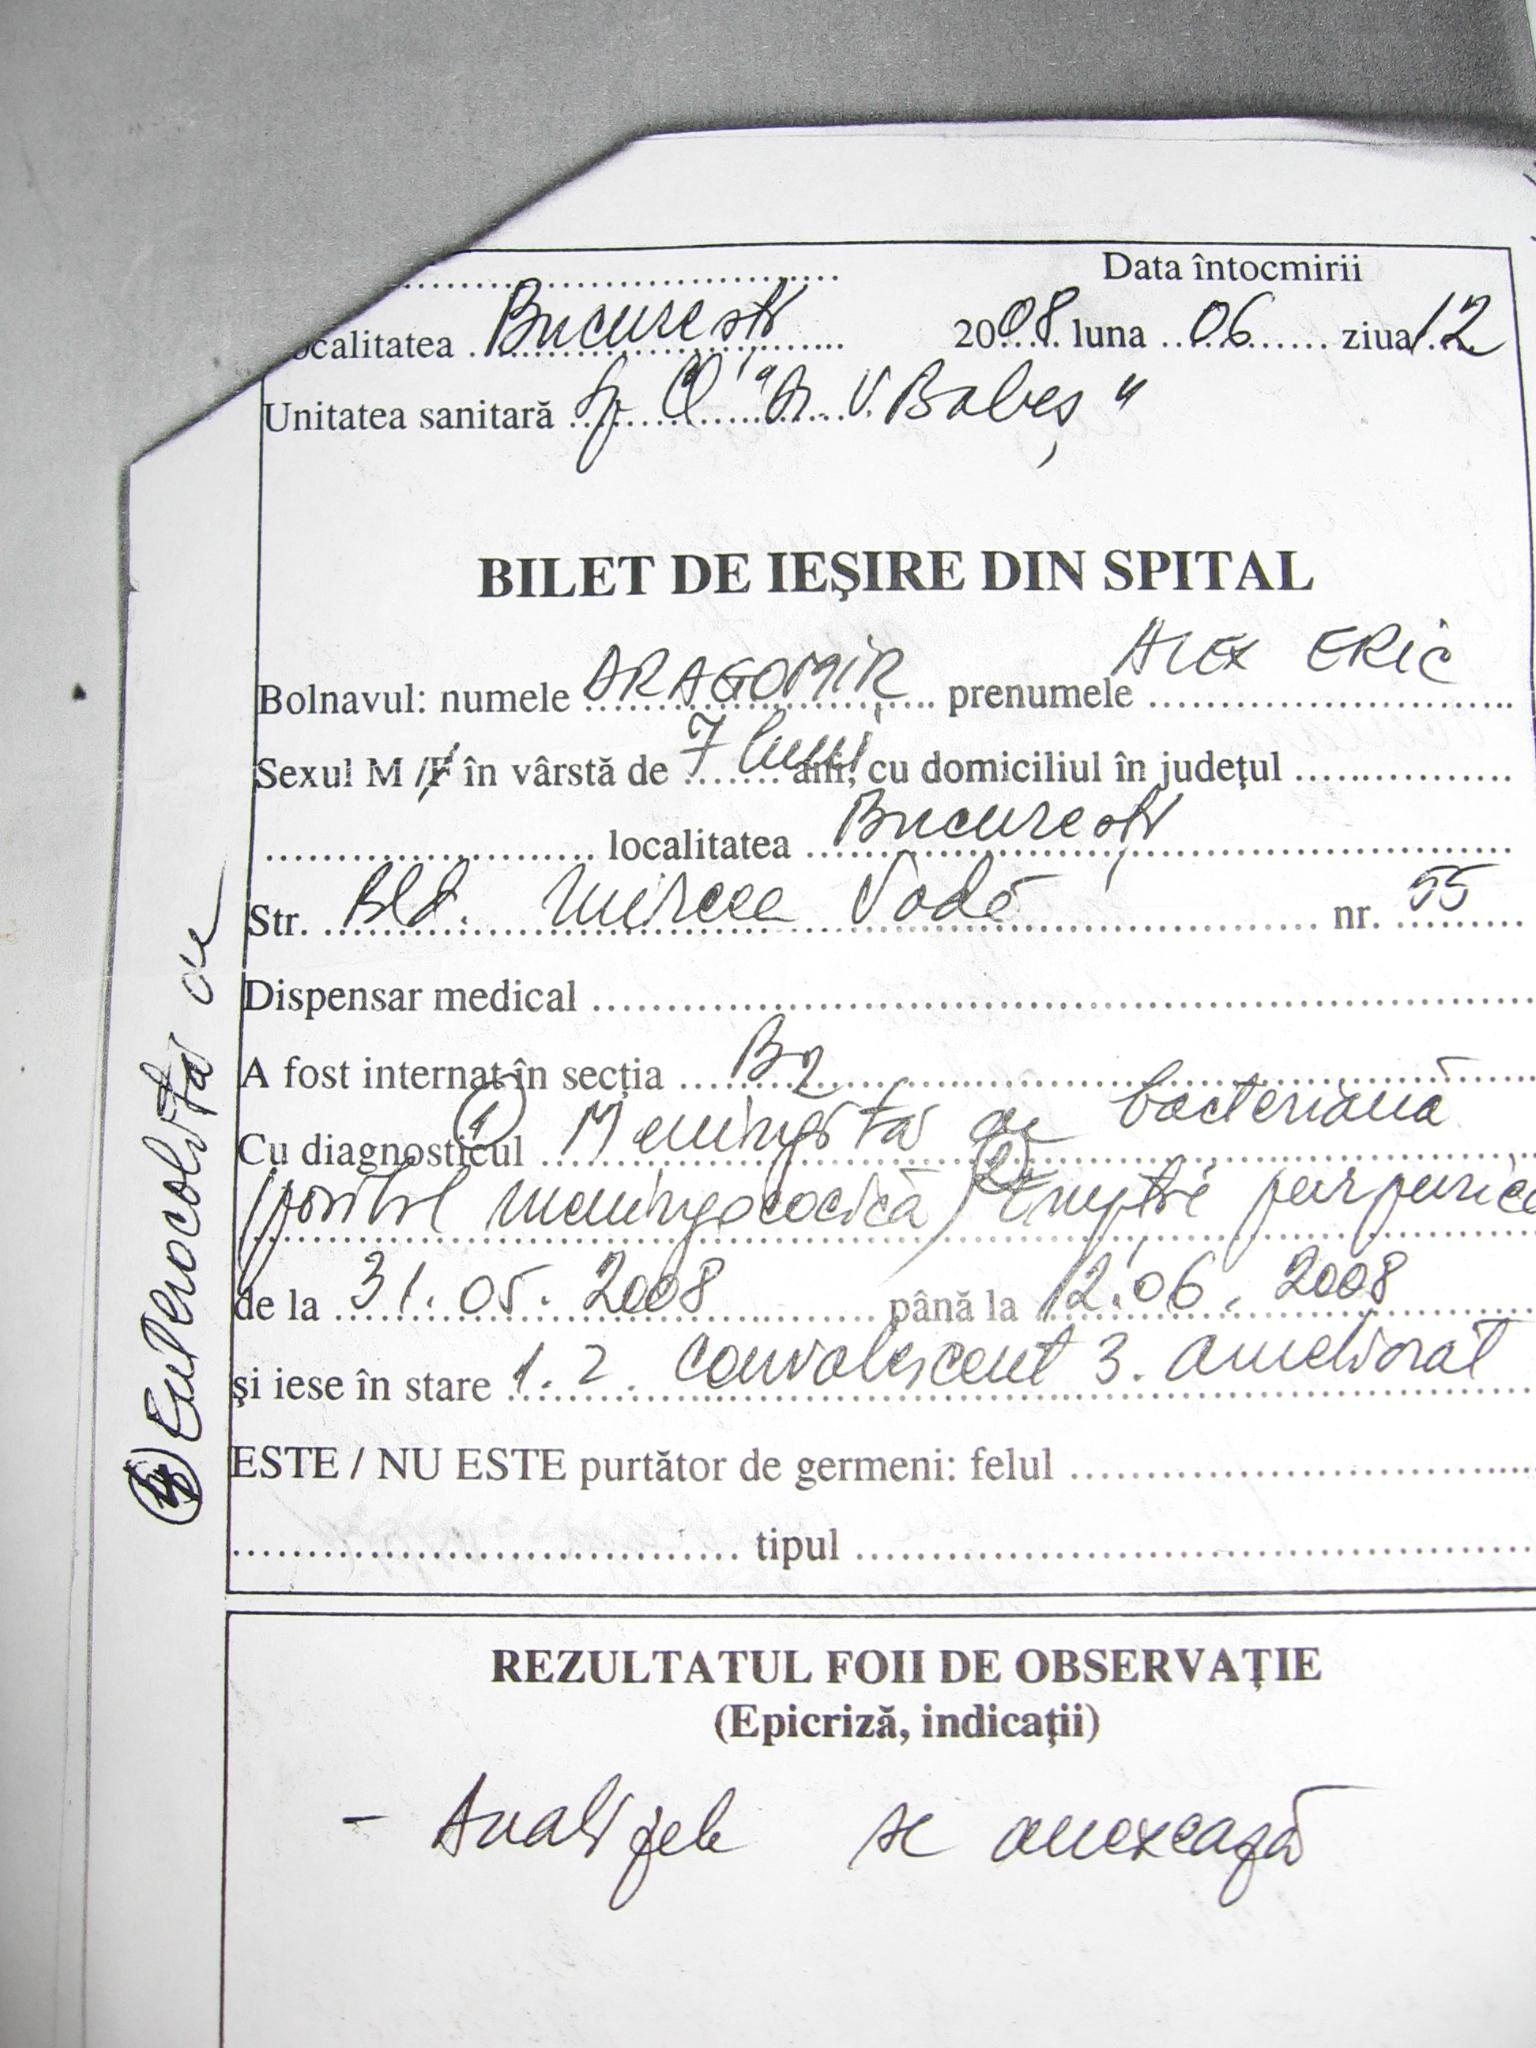 Data întocmirii
ocalitatea Bucuresti 2008 luna 06 ziua 12
Unitatea sanitară Sp. Cl "Dr. V. Babeș"
BILET DE IEȘIRE DIN SPITAL
Bolnavul: numele DRAGOMIR prenumele ALEX ERIC
Sexul M / F în vârstă de 7 luni ani, cu domiciliul în județul
localitatea București
Str. Bld. Mircea Vodă nr. 55
Dispensar medical
A fost internat în secția B2
Cu diagnosticul 1 Meningita ac bacteriană
(posibil meningococică) 2 Erupție purpurică
de la 31.05.2008 până la 12.06.2008
și iese în stare 1. 2. convalescent 3. ameliorat
ESTE / NU ESTE purtător de germeni: felul
tipul
4 Enterocolita ac
REZULTATUL FOII DE OBSERVAȚIE
(Epicriză, indicații)
- Analizele se anexează